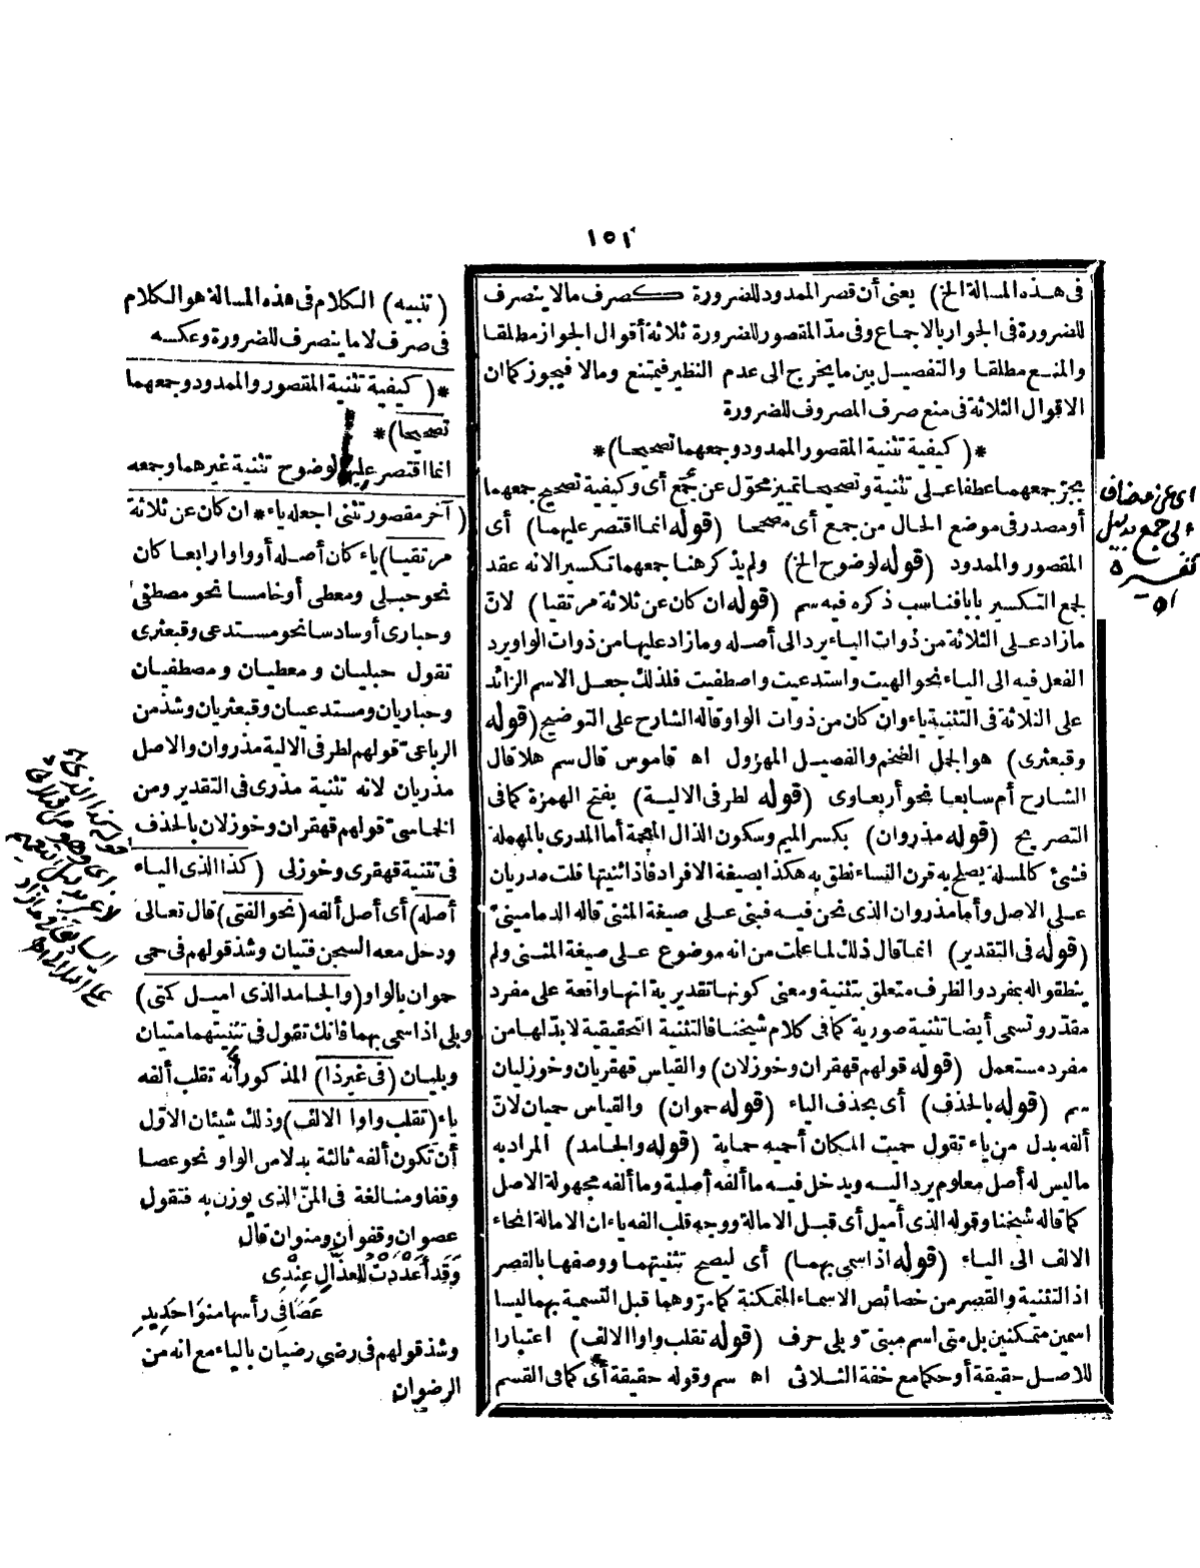 ١٥٢
فى هذه المسالة الخ) يعنى أن قصر الممدود للضرورة كصرف مالا ينصرف
للضرورة فى الجواز بالاجماع وفى مدّ المقصور للضرورة ثلاثة أقوال الجواز مطلقا
والمنع مطلقا والتفصيل بين ما يخرج الى عدم النظير فيمتنع ومالا فيجوز كما ان
الاقوال الثلاثة فى منع صرف المصروف للضرورة
*(كيفية تثنية المقصور الممدود وجمعهما تصحيحا)*
يجرّ جمعهما عطفا على تثنية وتصحيحا تمييز محوّل عن جمع أى وكيفية تصحيح جمعهما
أو مصدر فى موضع الحال من جمع أى مصححا (قوله انما اقتصر عليهما) أى
المقصور والممدود (قوله لوضوح الخ) ولم يذكر هنا جمعهما تكسير الانه عقد
لجمع التكسير بابا فناسب ذكره فيه سم (قوله ان كان عن ثلاثة مرتقيا) لانّ
مازاد على الثلاثة من ذوات الياء يرد الى أصله ومازاد عليها من ذوات الواو يرد
الفعل فيه الى الياء نحو الهيت واستدعيت واصطفيت فلذلك جعل الاسم الزائد
على الثلاثة فى التثنية ياء وان كان من ذوات الواو قاله الشارح على التوضيح (قوله
وقبعثرى) هو الجمل الضخم والفصيل المهزول اه قاموس قال سم هلا قال
الشارح أم سابعا نحو أربعاوى (قوله لطرفى الالية) بفتح الهمزة كما فى
التصريح (قوله مذروان) بكسر الميم وسكون الذال المعجمة أما المدرى بالمهملة
فشئ كالمسلة يصلح به قرن النساء نطق به هكذا بصيغة الافراد فاذا ثنيتها قلت مدريان
على الاصل وأما مذروان الذى نحن فيه فبنى على صيغة المثنى قاله الدمامينىّ
(قوله فى التقدير) انما قال ذلك لما علمت من انه موضوع على صيغة المثنى ولم
ينطقوا له بمفرد والظرف متعلق بتثنية ومعنى كونها تقديرية انها واقعة على مفرد
مقدّر وتسمى أيضا تثنية صورية كما فى كلام شيخنا فالتثنية التحقيقية لا بدّ لها من
مفرد مستعمل (قوله قولهم قهقران وخوزلان) والقياس قهقريان وخوزليان
سم (قوله بالحذف) أى بحذف الياء (قوله حموان) والقياس حميان لانّ
ألفه بدل من ياء تقول حميت المكان أحميه حماية (قوله والجامد) المراد به
ماليس له أصل معلوم يرد اليه ويدخل فيه ما ألفه أصلية وما ألفه مجهولة الاصل
كما قاله شيخنا وقوله الذى أميل أى قبل الامالة ووجه قلب الفه ياء ان الامالة انحاء
الالف الى الياء (قوله اذا سمى بهما) أى ليصح تثنيتهما ووصفها بالقصر
اذ التثنية والقصر من خصائص الاسماء المتمكنة كما مرّ وهما قبل التسمية بهما ليسا
اسمين متمكنين بل متى اسم مبنىّ وبلى حرف (قوله تقلب واوا الالف) اعتبارا
للاصل حقيقة أو حكما مع خفة الثلاثى اه سم وقوله حقيقة أى كما فى القسم
(تنبيه) الكلام فى هذه المسالة هو الكلام
فى صرف لا ما ينصرف للضرورة وعكسه
*(كيفية تثنية المقصور والممدود وجمعهما
تصحيحا)*
انما اقتصر عليهما لوضوح تثنية غيرهما وجمعه
(آخر مقصور تثنى اجعله ياء * ان كان عن ثلاثة
مرتقيا) ياء كان أصله أو واوا رابعا كان
نحو حبلى ومعطى أو خامسا نحو مصطفى
وحبارى أو سادسا نحو مستدعى وقبعثرى
تقول حبليان ومعطيان ومصطفيان
وحباريان ومستدعيان وقبعثريان وشذ من
الرباعىّ قولهم لطرفى الالية مذروان والاصل
مذريان لانه تثنية مذرى فى التقدير ومن
الخماسىّ قولهم قهقران وخوزلان بالحذف
فى تثنية قهقرى وخوزلى (كذا الذى الياء
أصله) أى أصل ألفه (نحو الفتى) قال تعالى
ودخل معه السجن فتيان وشذ قولهم فى حمى
حموان بالواو (والجامد الذى اميل كمتى)
وبلى اذا سمى بهما فانك تقول فى تثنيتهما متيان
وبليان (فى غير ذا) المذكور أنه تقلب ألفه
ياء (تقلب واوا الالف) وذلك شيئان الاوّل
أن تكون ألفه ثالثة بدلا من الواو نحو عصا
وقفا ومنا لغة فى المنّ الذى يوزن به فتقول
عصوان وقفوان ومنوان قال
وَقَد أَعْدَدْتُ للعذّالِ عِنْدِى
عَصًا فى رأسها منوَا حَدِيدِ
وشذ قولهم فى رضى رضيان بالياء مع انه من
الرضوان
اى عن مضاف